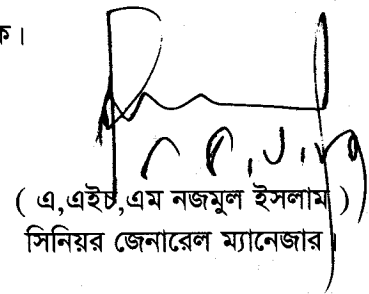 ক।
( এ,এইচ,এম নজমুল ইসলাম )
সিনিয়র জেনারেল ম্যানেজার।